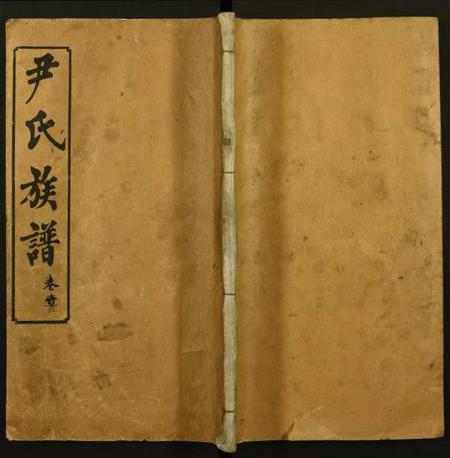 尹氏族譜
卷壹